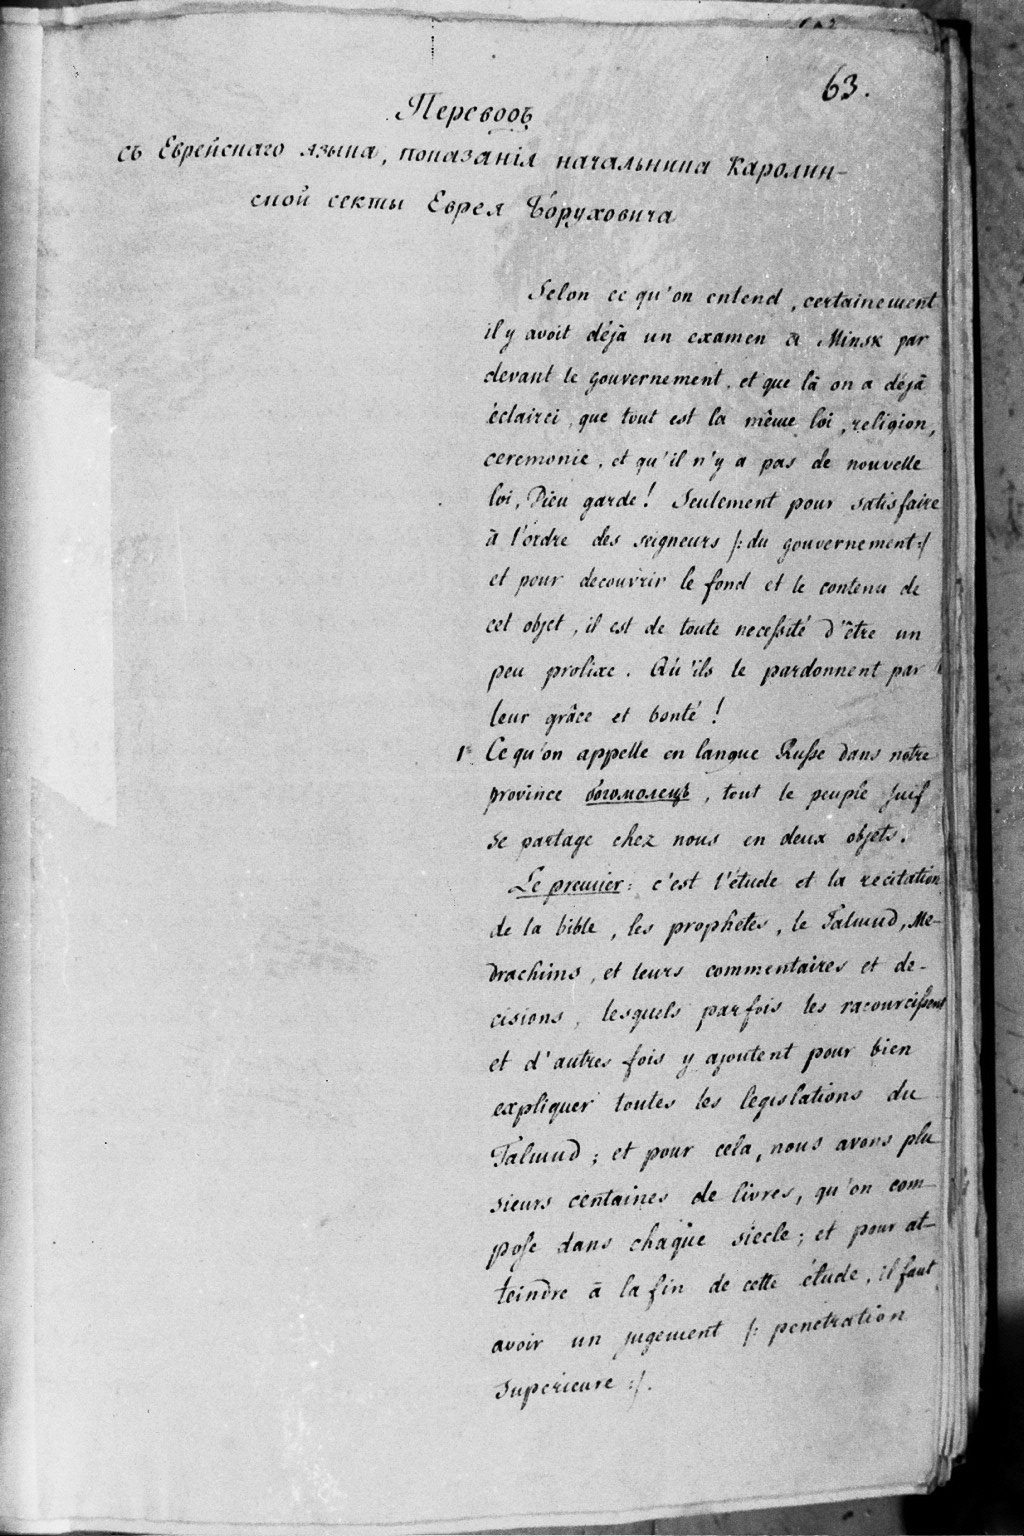 63.
Переводъ
съ Еврейскаго языка, показанія начальника Каролин-
ской секты Еврея Боруховича
Selon ce qu'on entend, certainement
il y avoit déjà un examen à Minsk par
devant le gouvernement, et que là on a déjà
éclairci, que tout est la même loi, religion,
ceremonie, et qu'il n'y a pas de nouvelle
loi, Dieu garde! Seulement pour satisfaire
à l'ordre des seigneurs /: du gouvernement :/
et pour decouvrir le fond et le contenu de
cet objet, il est de toute necessité d'être un
peu prolixe. Qu'ils le pardonnent par
leur grâce et bonté!
1° Ce qu'on appelle en langue Russe dans notre
province богомолецъ, tout le peuple Juif
se partage chez nous en deux objets.
Le premier: c'est l'étude et la recitation
de la bible, les prophétes, le Talmud, Me-
drachims, et leurs commentaires et de-
cisions, lesquels parfois les racourcissent
et d'autres fois y ajoutent pour bien
expliquer toutes les legislations du
Talmud; et pour cela, nous avons plu
sieurs centaines de livres, qu'on com-
pose dans chaque siecle; et pour at-
teindre à la fin de cette étude, il faut
avoir un jugement /: penetration
superieure :/.